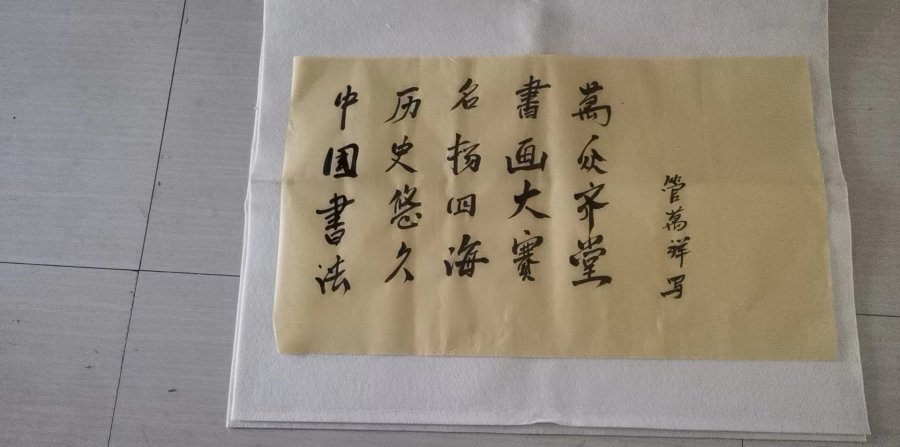 中国書法
历史悠久
名揚四海
書画大賽
萬众齐堂
管萬祥写